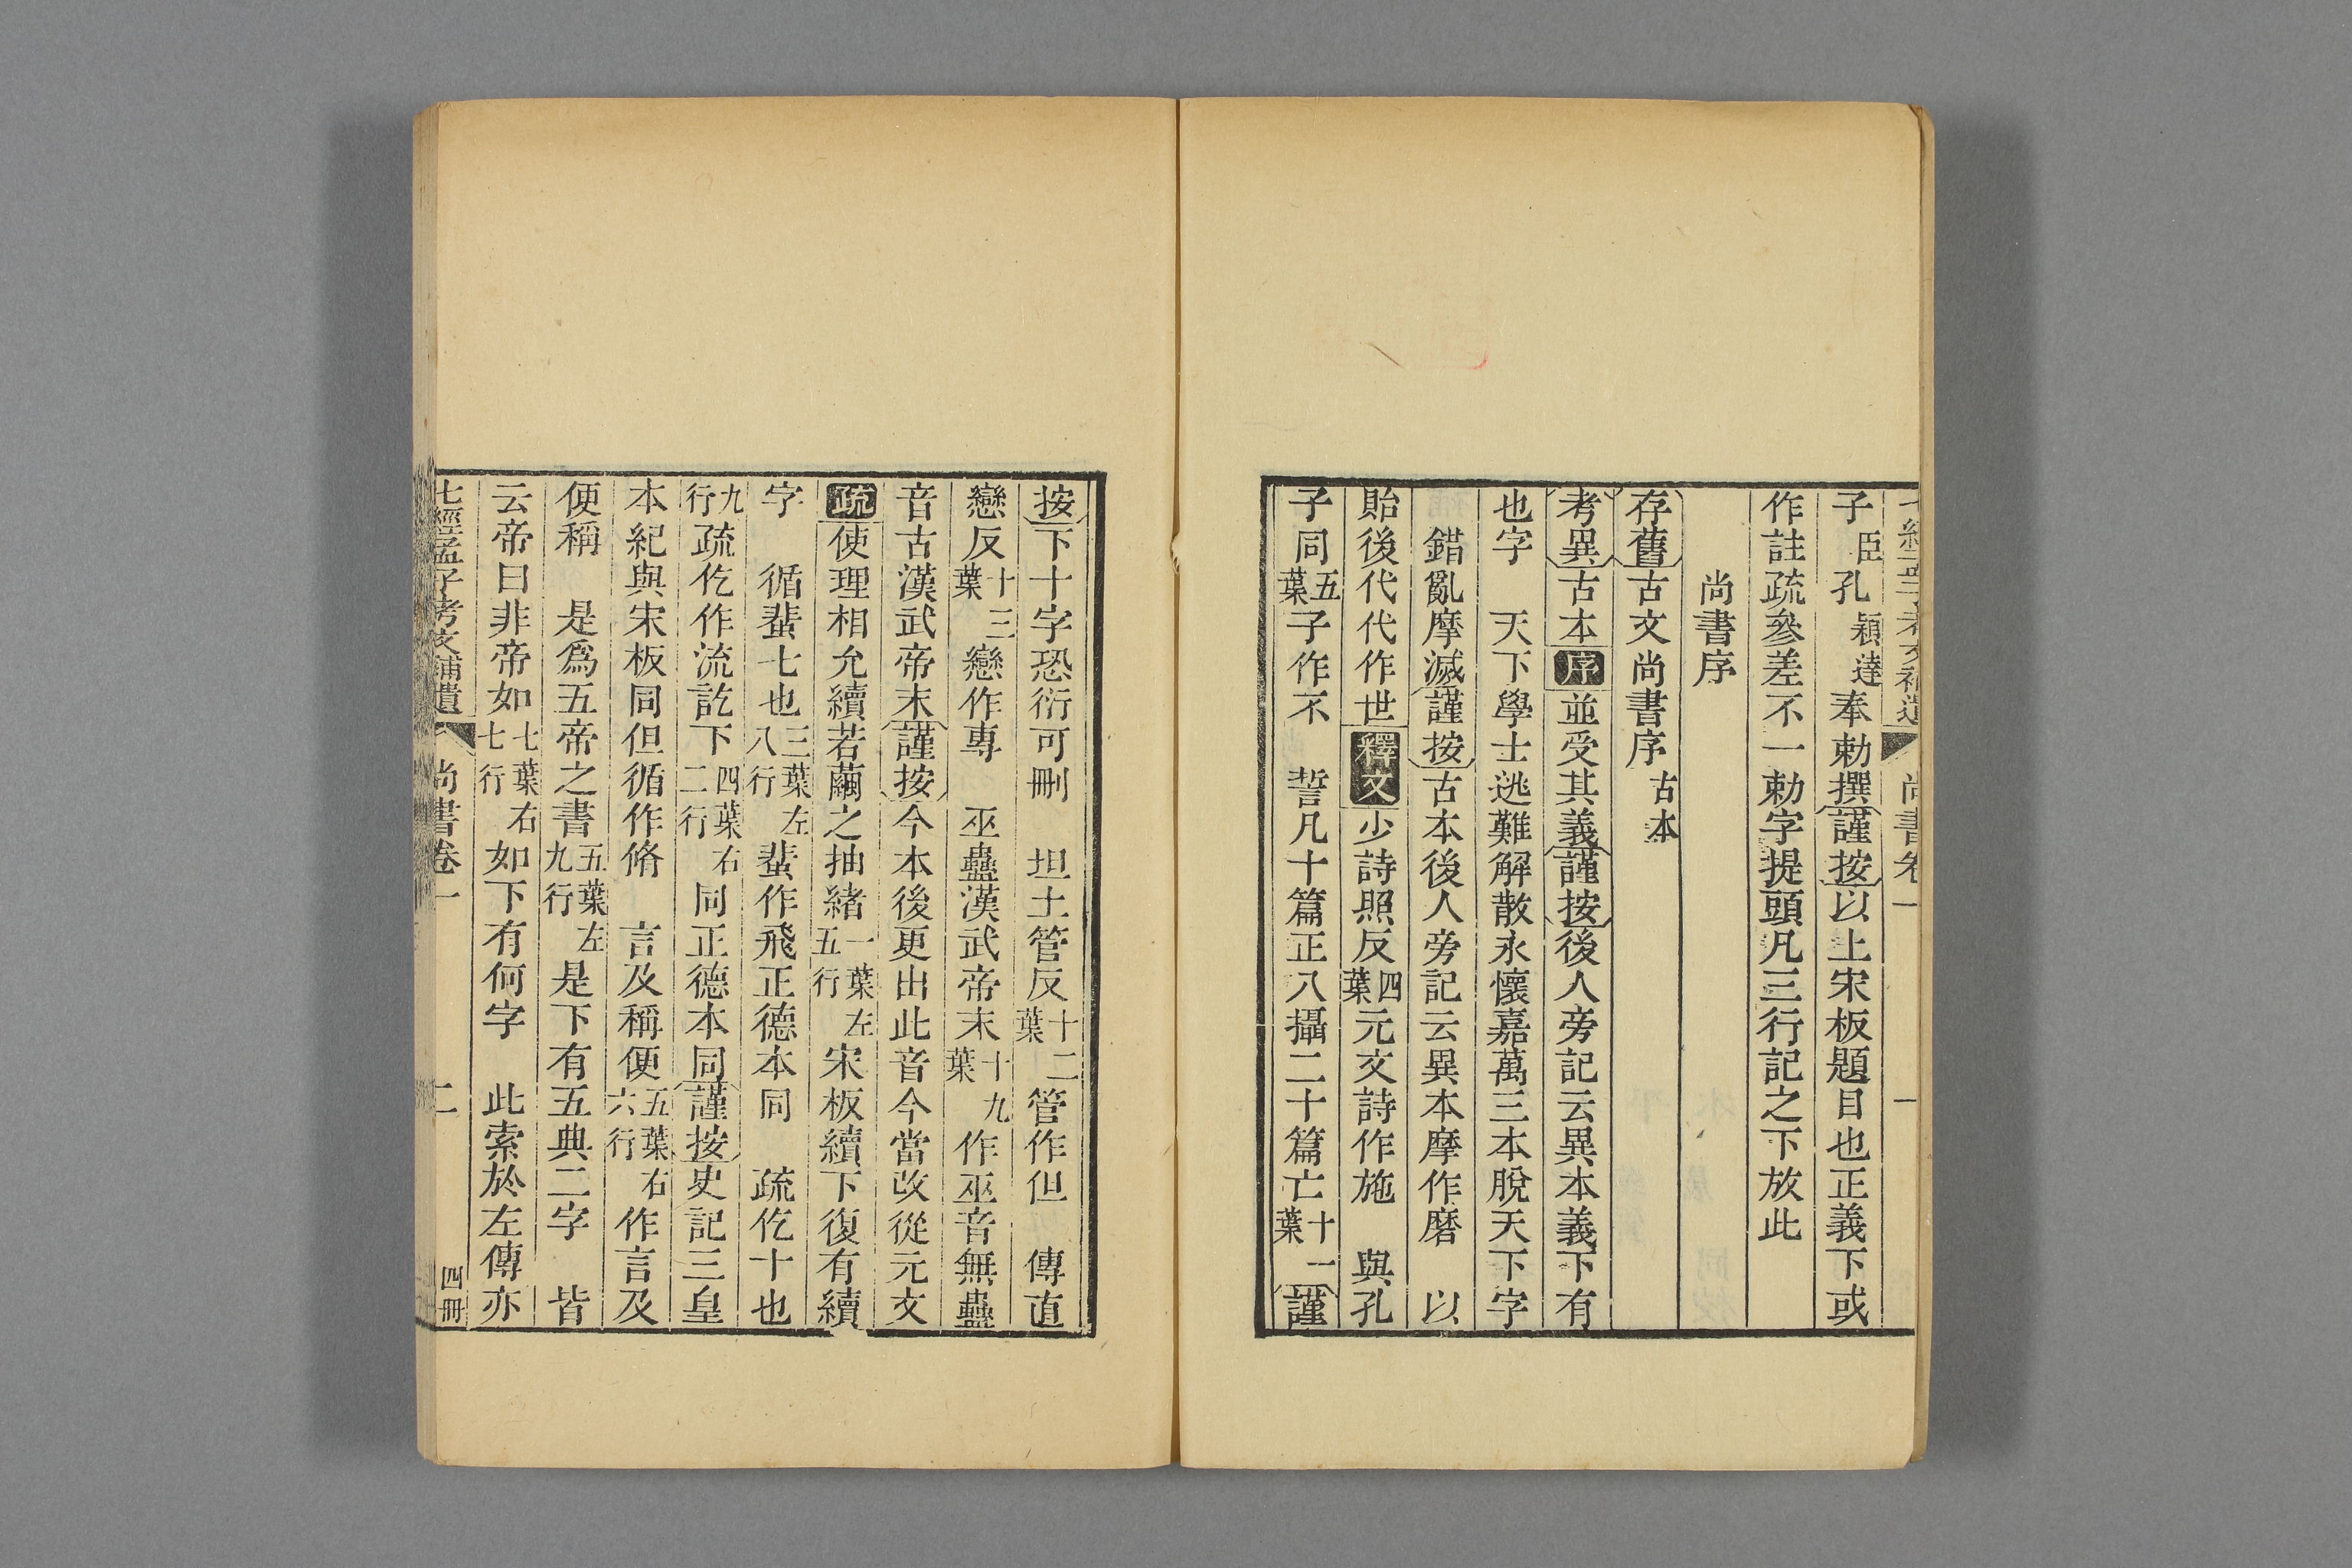 七經孟子考文補遺 尚書卷一 一
子臣孔穎達奉勅撰謹按以上宋板題目也正義下或
作註疏參差不一勅字提頭凡三行記之下放此
尚書序
存舊古文尚書序古本
考異古本序並受其義謹按後人旁記云異本義下有
也字 天下學士逃難解散永懷嘉萬三本脫天下字
錯亂摩滅謹按古本後人旁記云異本摩作磨 以
貽後代代作世釋文少詩照反四葉元文詩作施 與孔
子同五葉子作不 誓凡十篇正八攝二十篇亡十一葉謹
按下十字恐衍可刪 坦土管反十二葉管作但 傳直
戀反十三葉戀作專 巫蠱漢武帝末十九葉作巫音無蠱
音古漢武帝末謹按今本後更出此音今當改從元文
疏使理相允續若繭之抽緒一葉左五行宋板續下復有續
字 循蜚七也三葉左八行蜚作飛正德本同 疏仡十也
九行疏仡作流訖下四葉右二行同正德本同謹按史記三皇
本紀與宋板同但循作脩 言及稱便五葉右六行作言及
便稱 是爲五帝之書五葉左九行是下有五典二字 皆
云帝曰非帝如七葉右七行如下有何字 此索於左傳亦
七經孟子考文補遺 尚書卷一 二 四冊